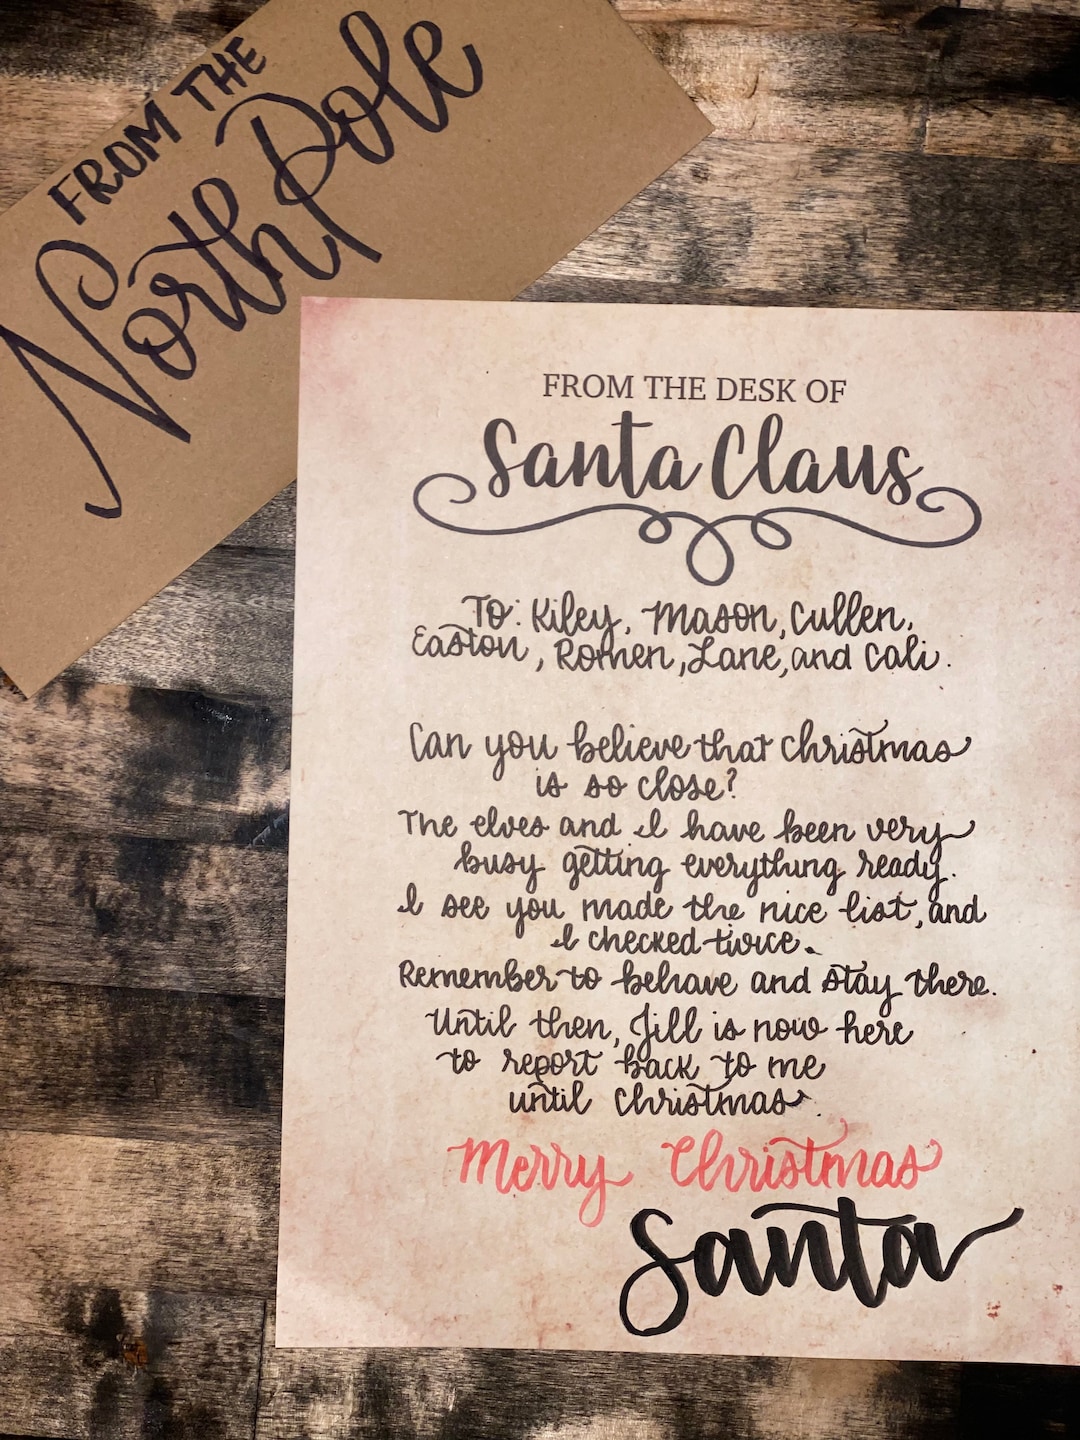 FROM THE
North Pole
FROM THE DESK OF
Santa Claus
To: Kiley, Mason, Cullen,
Easton, Romen, Lane, and Cali.
Can you believe that Christmas
is so close?
The elves and I have been very
busy getting everything ready.
I see you made the nice list, and
I checked twice.
Remember to behave and stay there.
Until then, Jill is now here
to report back to me
until Christmas.
Merry Christmas
Santa